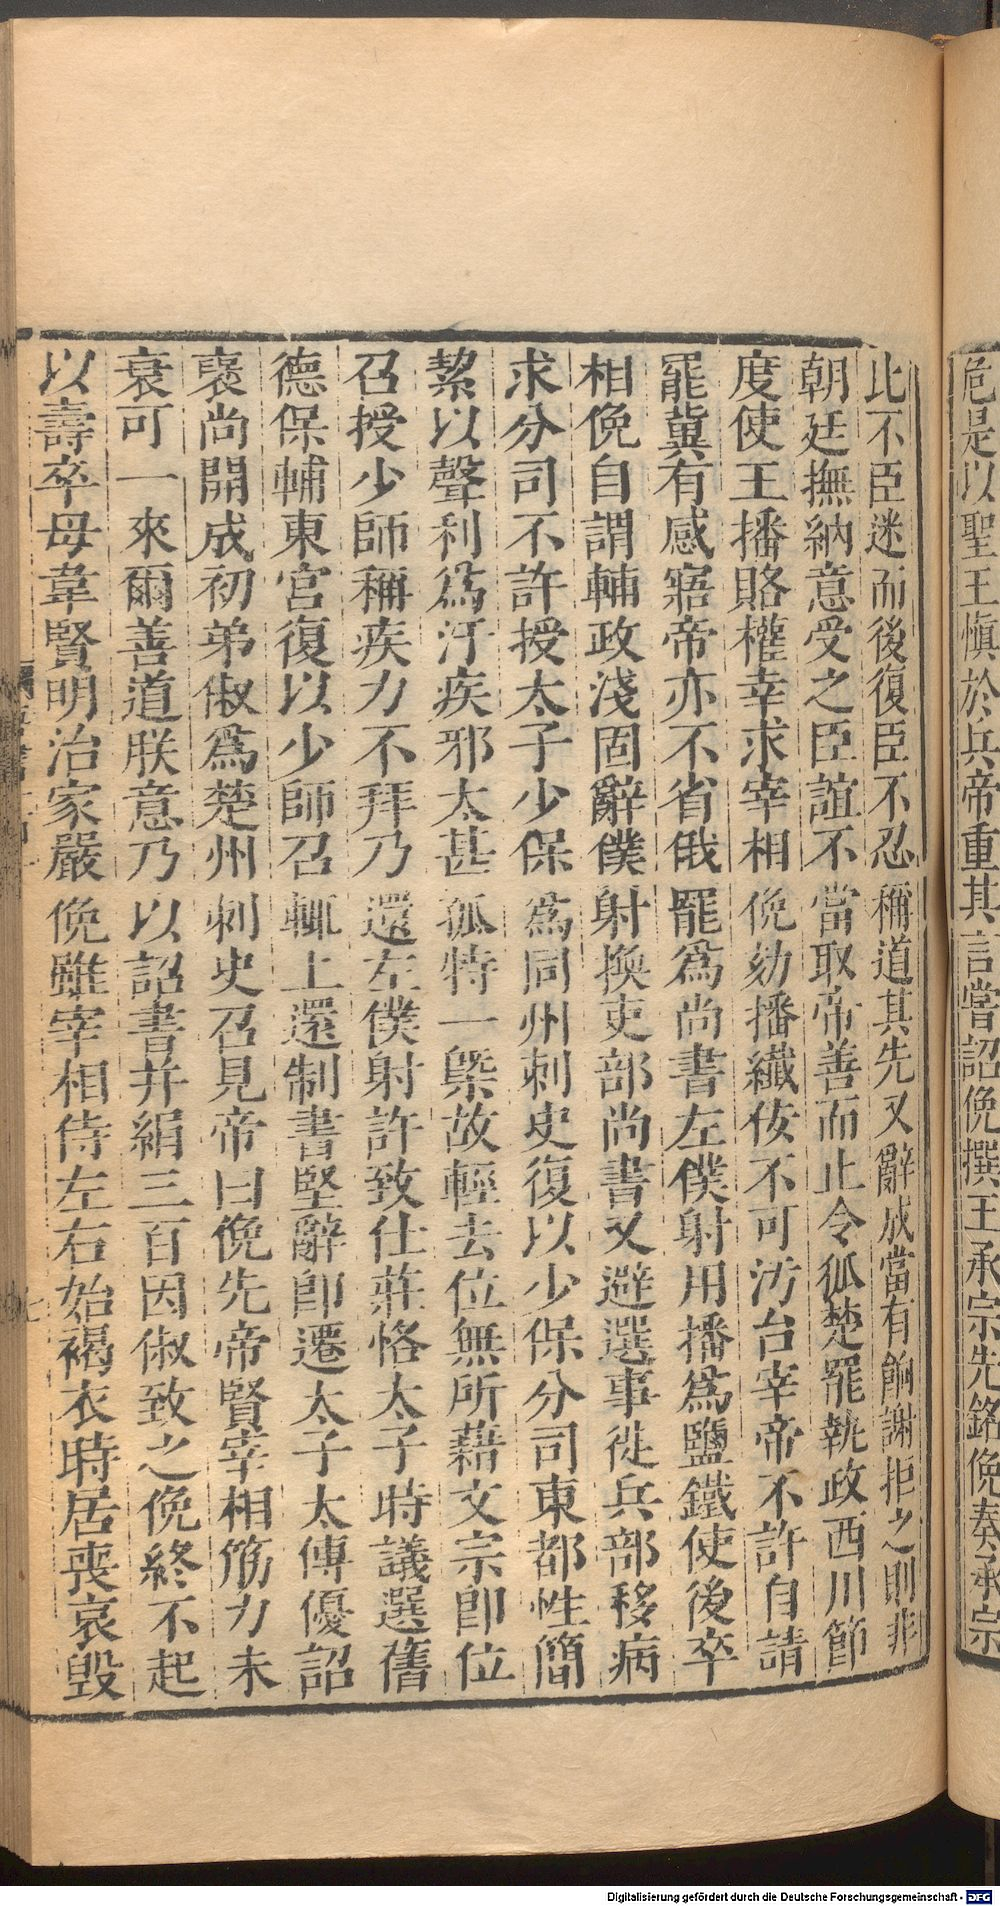 危是以聖王慎於兵帝重其言嘗詔俛撰王承宗先銘俛奏承宗
比不臣迷而後復臣不忍稱道其先又辭成當有餉謝拒之則非
朝廷撫納意受之臣誼不當取帝善而止令狐楚罷執政西川節
度使王播賂權幸求宰相俛劾播纖佞不可汚台宰帝不許自請
罷冀有感寤帝亦不省俄罷爲尚書左僕射用播爲鹽鐵使後卒
相俛自謂輔政淺固辭僕射換吏部尚書又避選事徙兵部移病
求分司不許授太子少保爲同州刺史復以少保分司東都性簡
絜以聲利爲汙疾邪太甚孤特一槩故輕去位無所藉文宗卽位
召授少師稱疾力不拜乃還左僕射許致仕莊恪太子時議選舊
德保輔東宮復以少師召輒上還制書堅辭卽遷太子太傅優詔
襃尚開成初弟俶爲楚州刺史召見帝曰俛先帝賢宰相筋力未
衰可一來爾善道朕意乃以詔書幷絹三百因俶致之俛終不起
以壽卒母韋賢明治家嚴俛雖宰相侍左右始褐衣時居喪哀毀
七
Digitalisierung gefördert durch die Deutsche Forschungsgemeinschaft - DFG